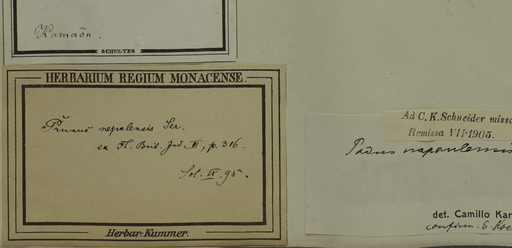 Kamaon.
SCHULTES
HERBARIUM REGIUM MONACENSE
Prunus nepalensis Ser.
ex Fl. Brit. Ind. II, p. 316.
Sol. IX. 95.
Herbar. Kummer.
Ad C. K. Schneider misso
Remissa VII·1905.
Padus napaulensis
det. Camillo Kar
confirm. E. Koe